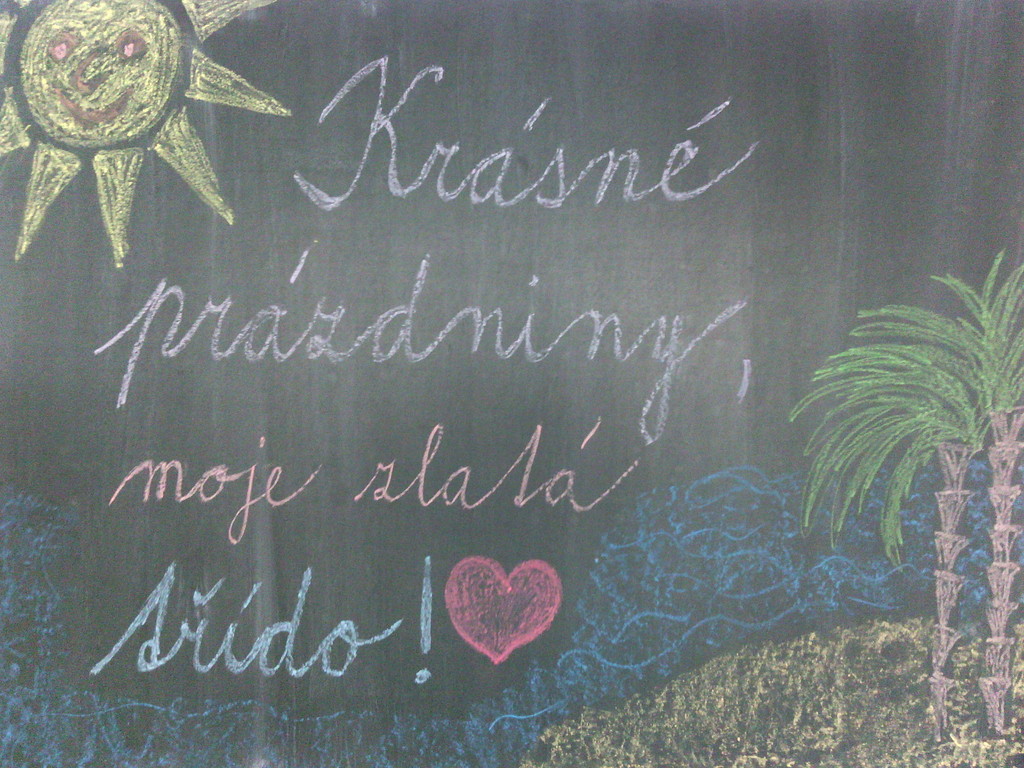 Krásné
prázdniny,
moje zlatá
třído!